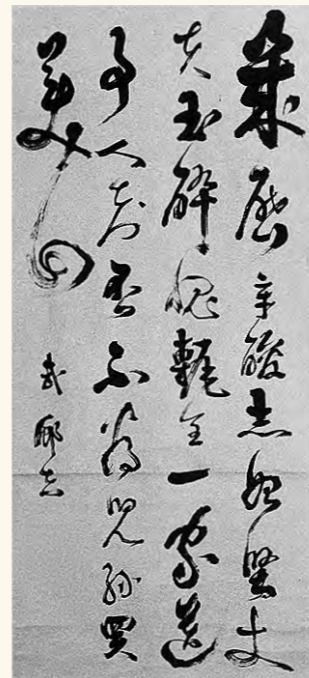 幾歴辛酸志始堅丈
夫玉碎愧甎全一家遺
事人知否不為兒孫買
美田
武邨吉